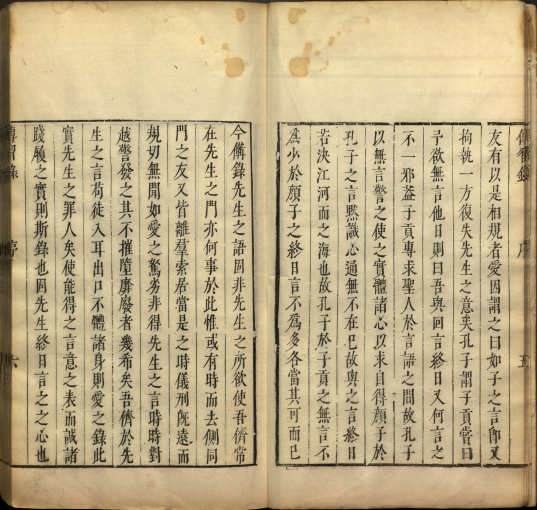 傳習錄 序 五
友有以是相規者愛因謂之曰如子之言卽又
拘執一方復失先生之意矣孔子謂子貢嘗曰
予欲無言他日則曰吾與回言終日又何言之
不一邪蓋子貢專求聖人於言語之間故孔子
以無言警之使之實體諸心以求自得顏子於
孔子之言默識心通無不在已故與之言終日
若決江河而之海也故孔子於子貢之無言不
爲少於顏子之終日言不爲多各當其可而已
今備錄先生之語固非先生之所欲使吾儕常
在先生之門亦何事於此惟或有時而去側同
門之友又皆離羣索居當是之時儀刑旣遠而
規切無聞如愛之駑劣非得先生之言時時對
越警發之其不摧墮廢者幾希矣吾儕於先
生之言苟徒入耳出口不體諸身則愛之錄此
實先生之罪人矣使能得之言意之表而誠諸
踐履之實則斯錄也固先生終日言之之心也
傳習錄 序 六